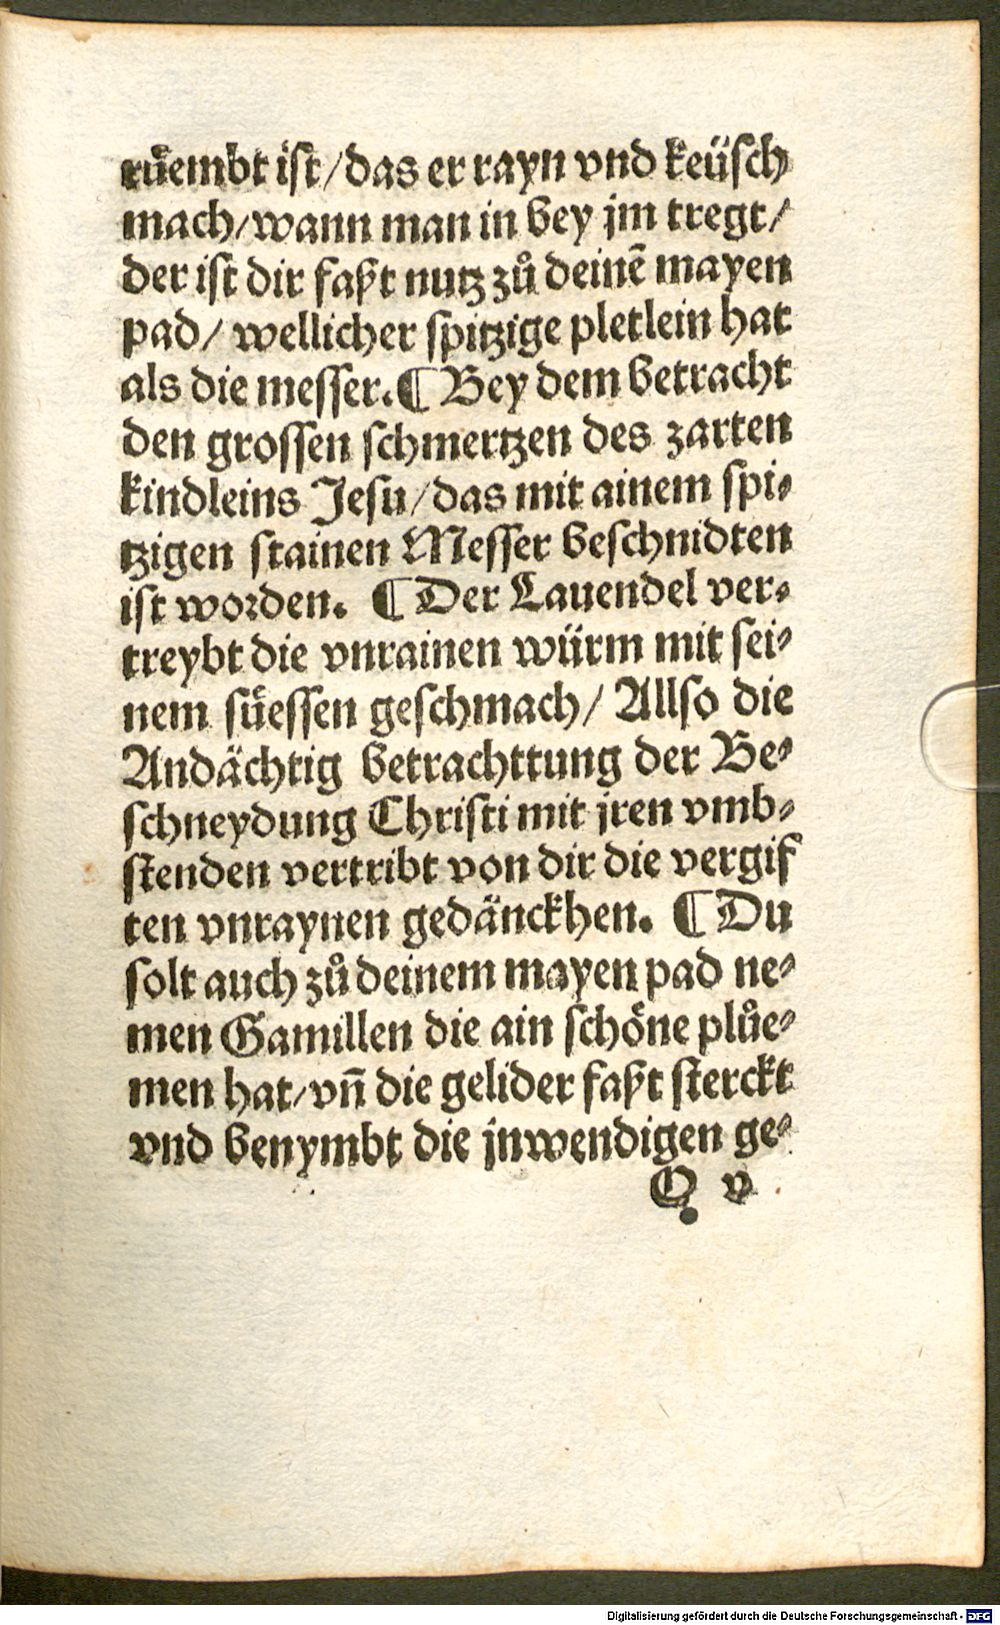 ruͤembt ist/das er rayn vnd keüsch
mach/wann man in bey jm tregt/
der ist dir faßt nutz zuͦ deinē mayen
pad/ wellicher spitzige pletlein hat
als die messer.¶Bey dem betracht
den grossen schmertzen des zarten
kindleins Jesu/das mit ainem spi⸗
tzigen stainen Messer beschnidten
ist worden. ¶Der Lauendel ver⸗
treybt die vnrainen würm mit sei⸗
nem suͤessen geschmach/ Allso die
Andächtig betrachttung der Be⸗
schneydung Christi mit jren vmb⸗
stenden vertribt von dir die vergif
ten vnraynen gedänckhen. ¶Du
solt auch zuͦ deinem mayen pad ne⸗
men Gamillen die ain schöne pluͦe⸗
men hat/vn̄ die gelider faßt sterckt
vnd benymbt die jnwendigen ge⸗
Q v
Digitalisierung gefördert durch die Deutsche Forschungsgemeinschaft - DFG